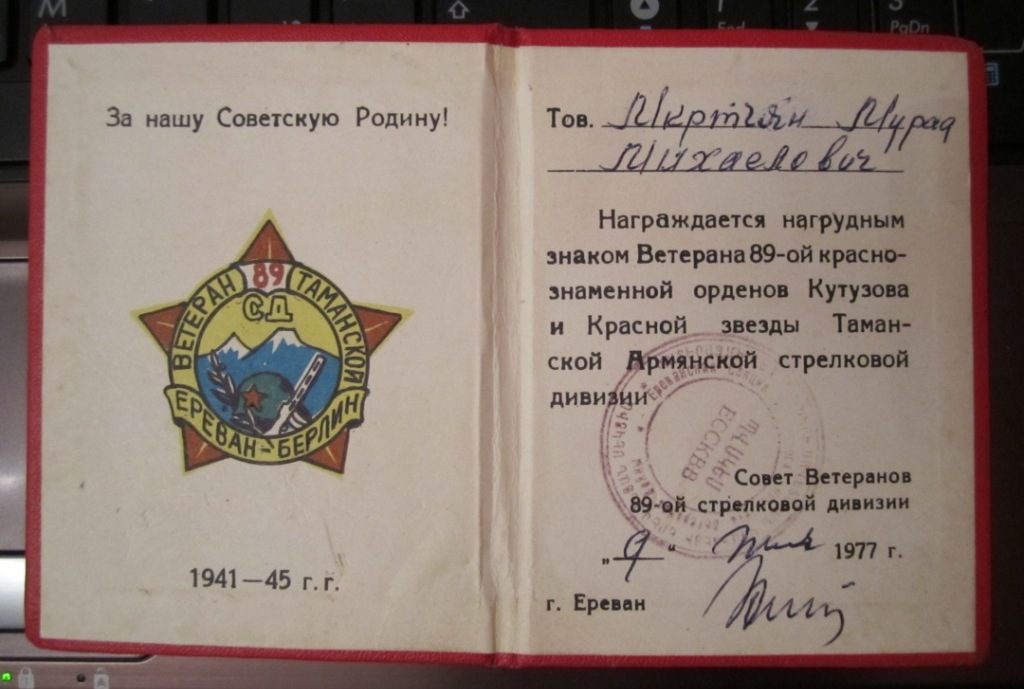 За нашу Советскую Родину!
ВЕТЕРАН 89 ТАМАНСКОЙ
СД
ЕРЕВАН-БЕРЛИН
1941—45 г.г.
Тов. Мкртчян Мурад
Михаелович
Награждается нагрудным
знаком Ветерана 89-ой красно-
знаменной орденов Кутузова
и Красной звезды Таман-
ской Армянской стрелковой
дивизии
ЕССКВВ
Совет Ветеранов
89-ой стрелковой дивизии
„9“ 1977 г.
г. Ереван